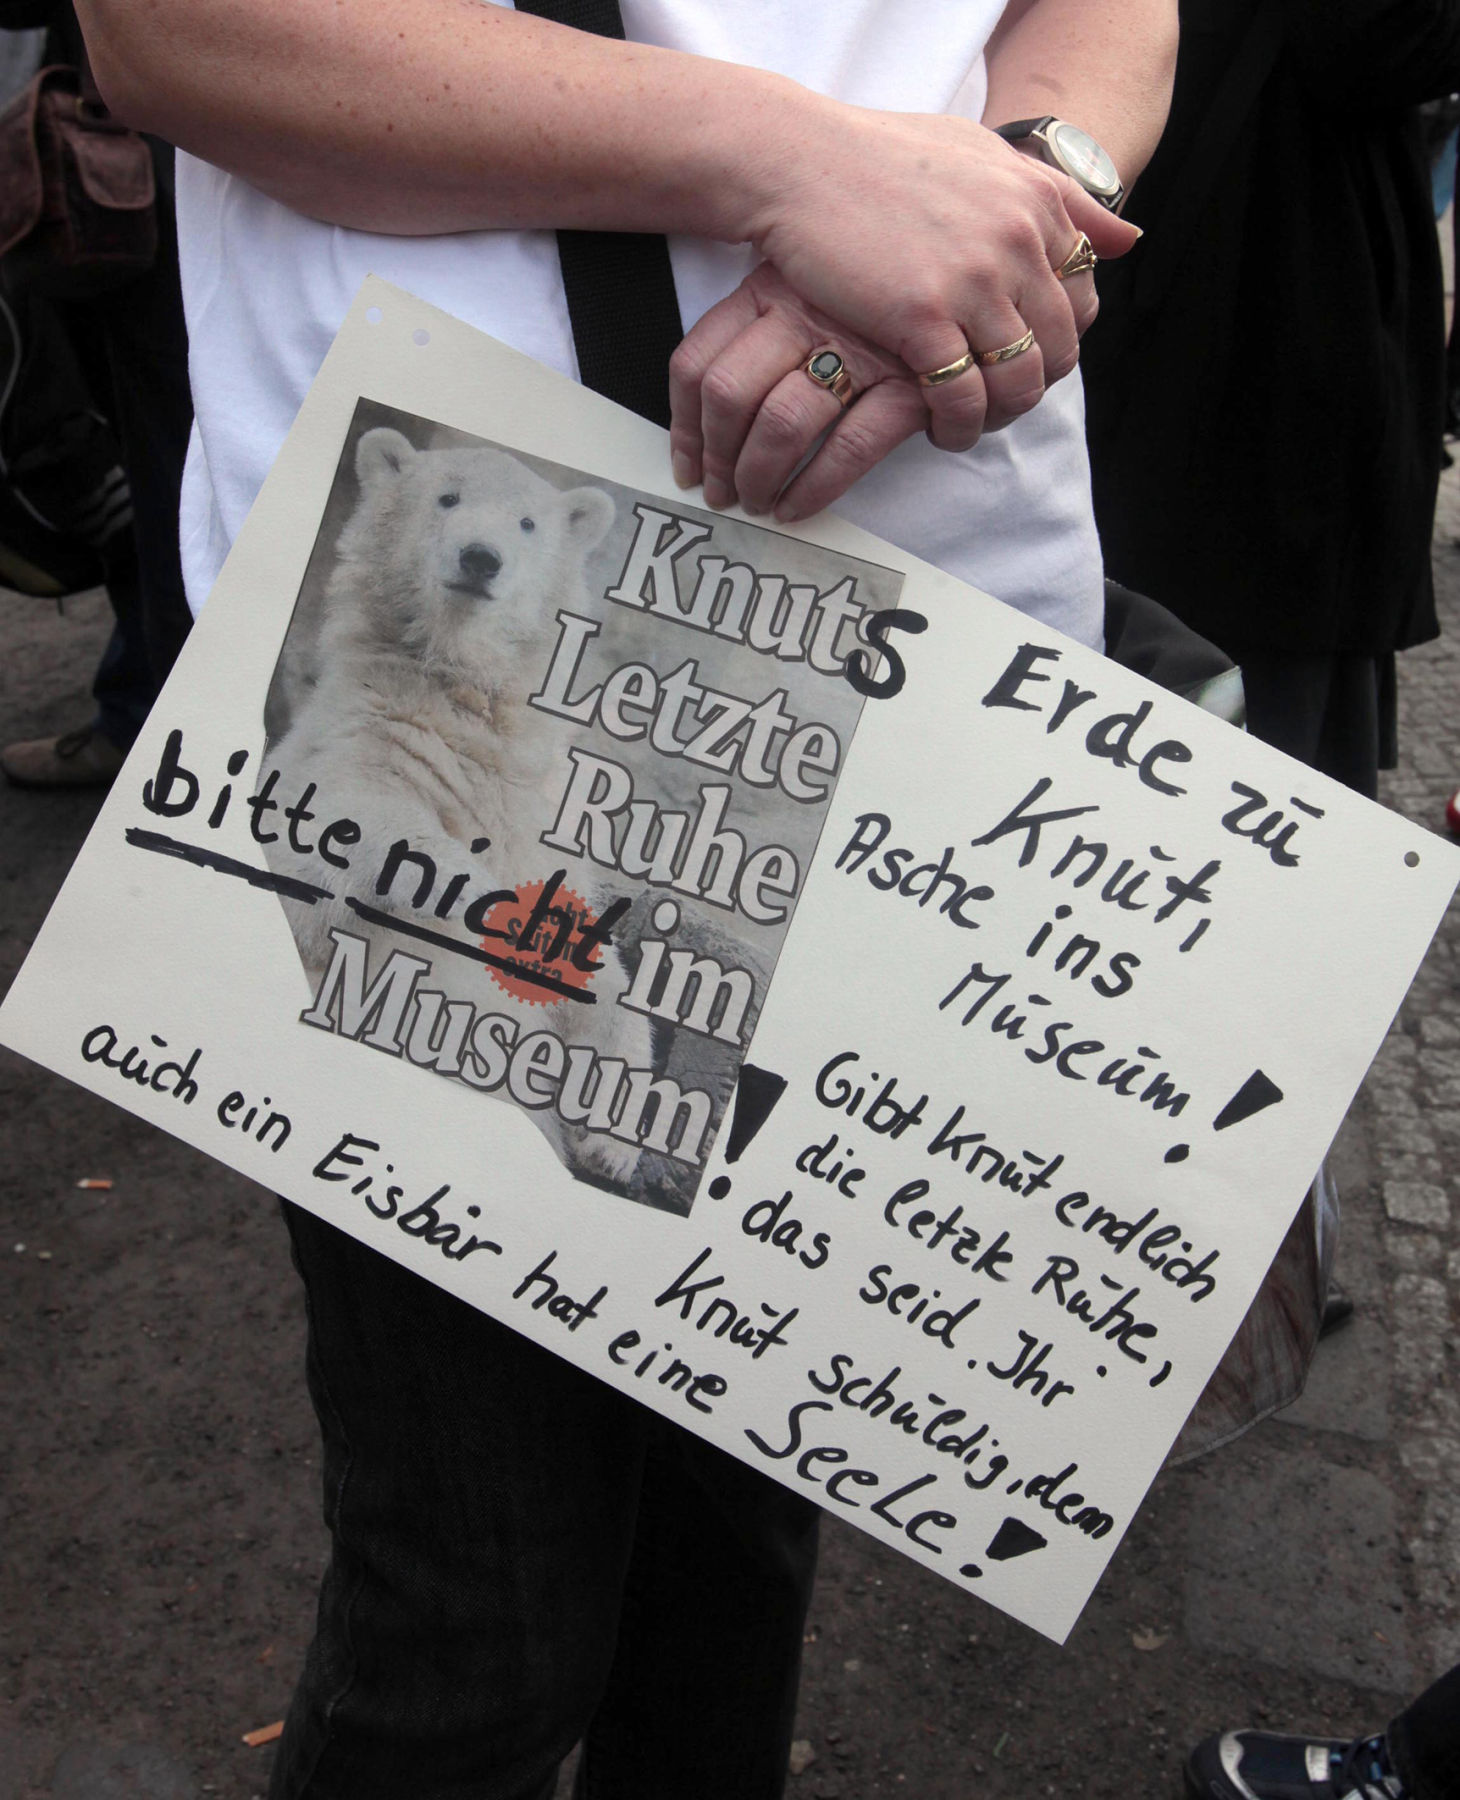 Knuts
Letzte
Ruhe
bitte nicht im
Museum!
Erde zu
Knut,
Asche ins
Museum!
Gibt Knut endlich
die letzte Ruhe,
das seid Ihr
Knut schuldig, denn
auch ein Eisbär hat eine Seele!
extra